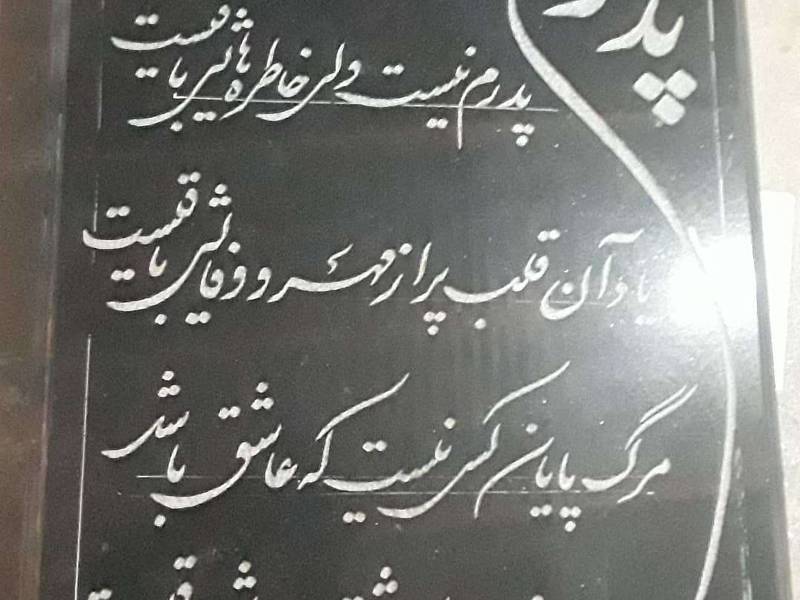 پدرم
پدرم نیست ولی خاطره هایش باقیست
یاد آن قلب پر از مهر و وفایش باقیست
مرگ پایان کسی نیست که عاشق باشد